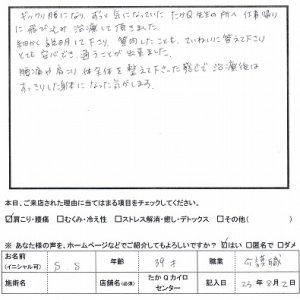 ギックリ腰になり、ずっと気になっていた たかQ先生の所へ 仕事帰り
に飛び込み 治療して頂きました。
細かく説明して下さり、質問したことも、ていねいに答えて下さり
とても安心でき、通うことが出来ました。
腰痛や肩こり 体全体を整えて下さった感じで 治療後は
すっきりした身体になった気がします。
本日、ご来店された理由に当てはまる項目をチェックしてください。
☑肩こり・腰痛 □むくみ・冷え性 □ストレス解消・癒し・デトックス □その他( )
※ あなた様の声を、ホームページなどでご紹介してもよろしいですか? ☑はい □匿名で □ダメ
お名前(イニシャル可) S S 年齢 39才 職業 介護職
施術名 店舗名(必須) たかQカイロセンター 記入日 25年8月2日